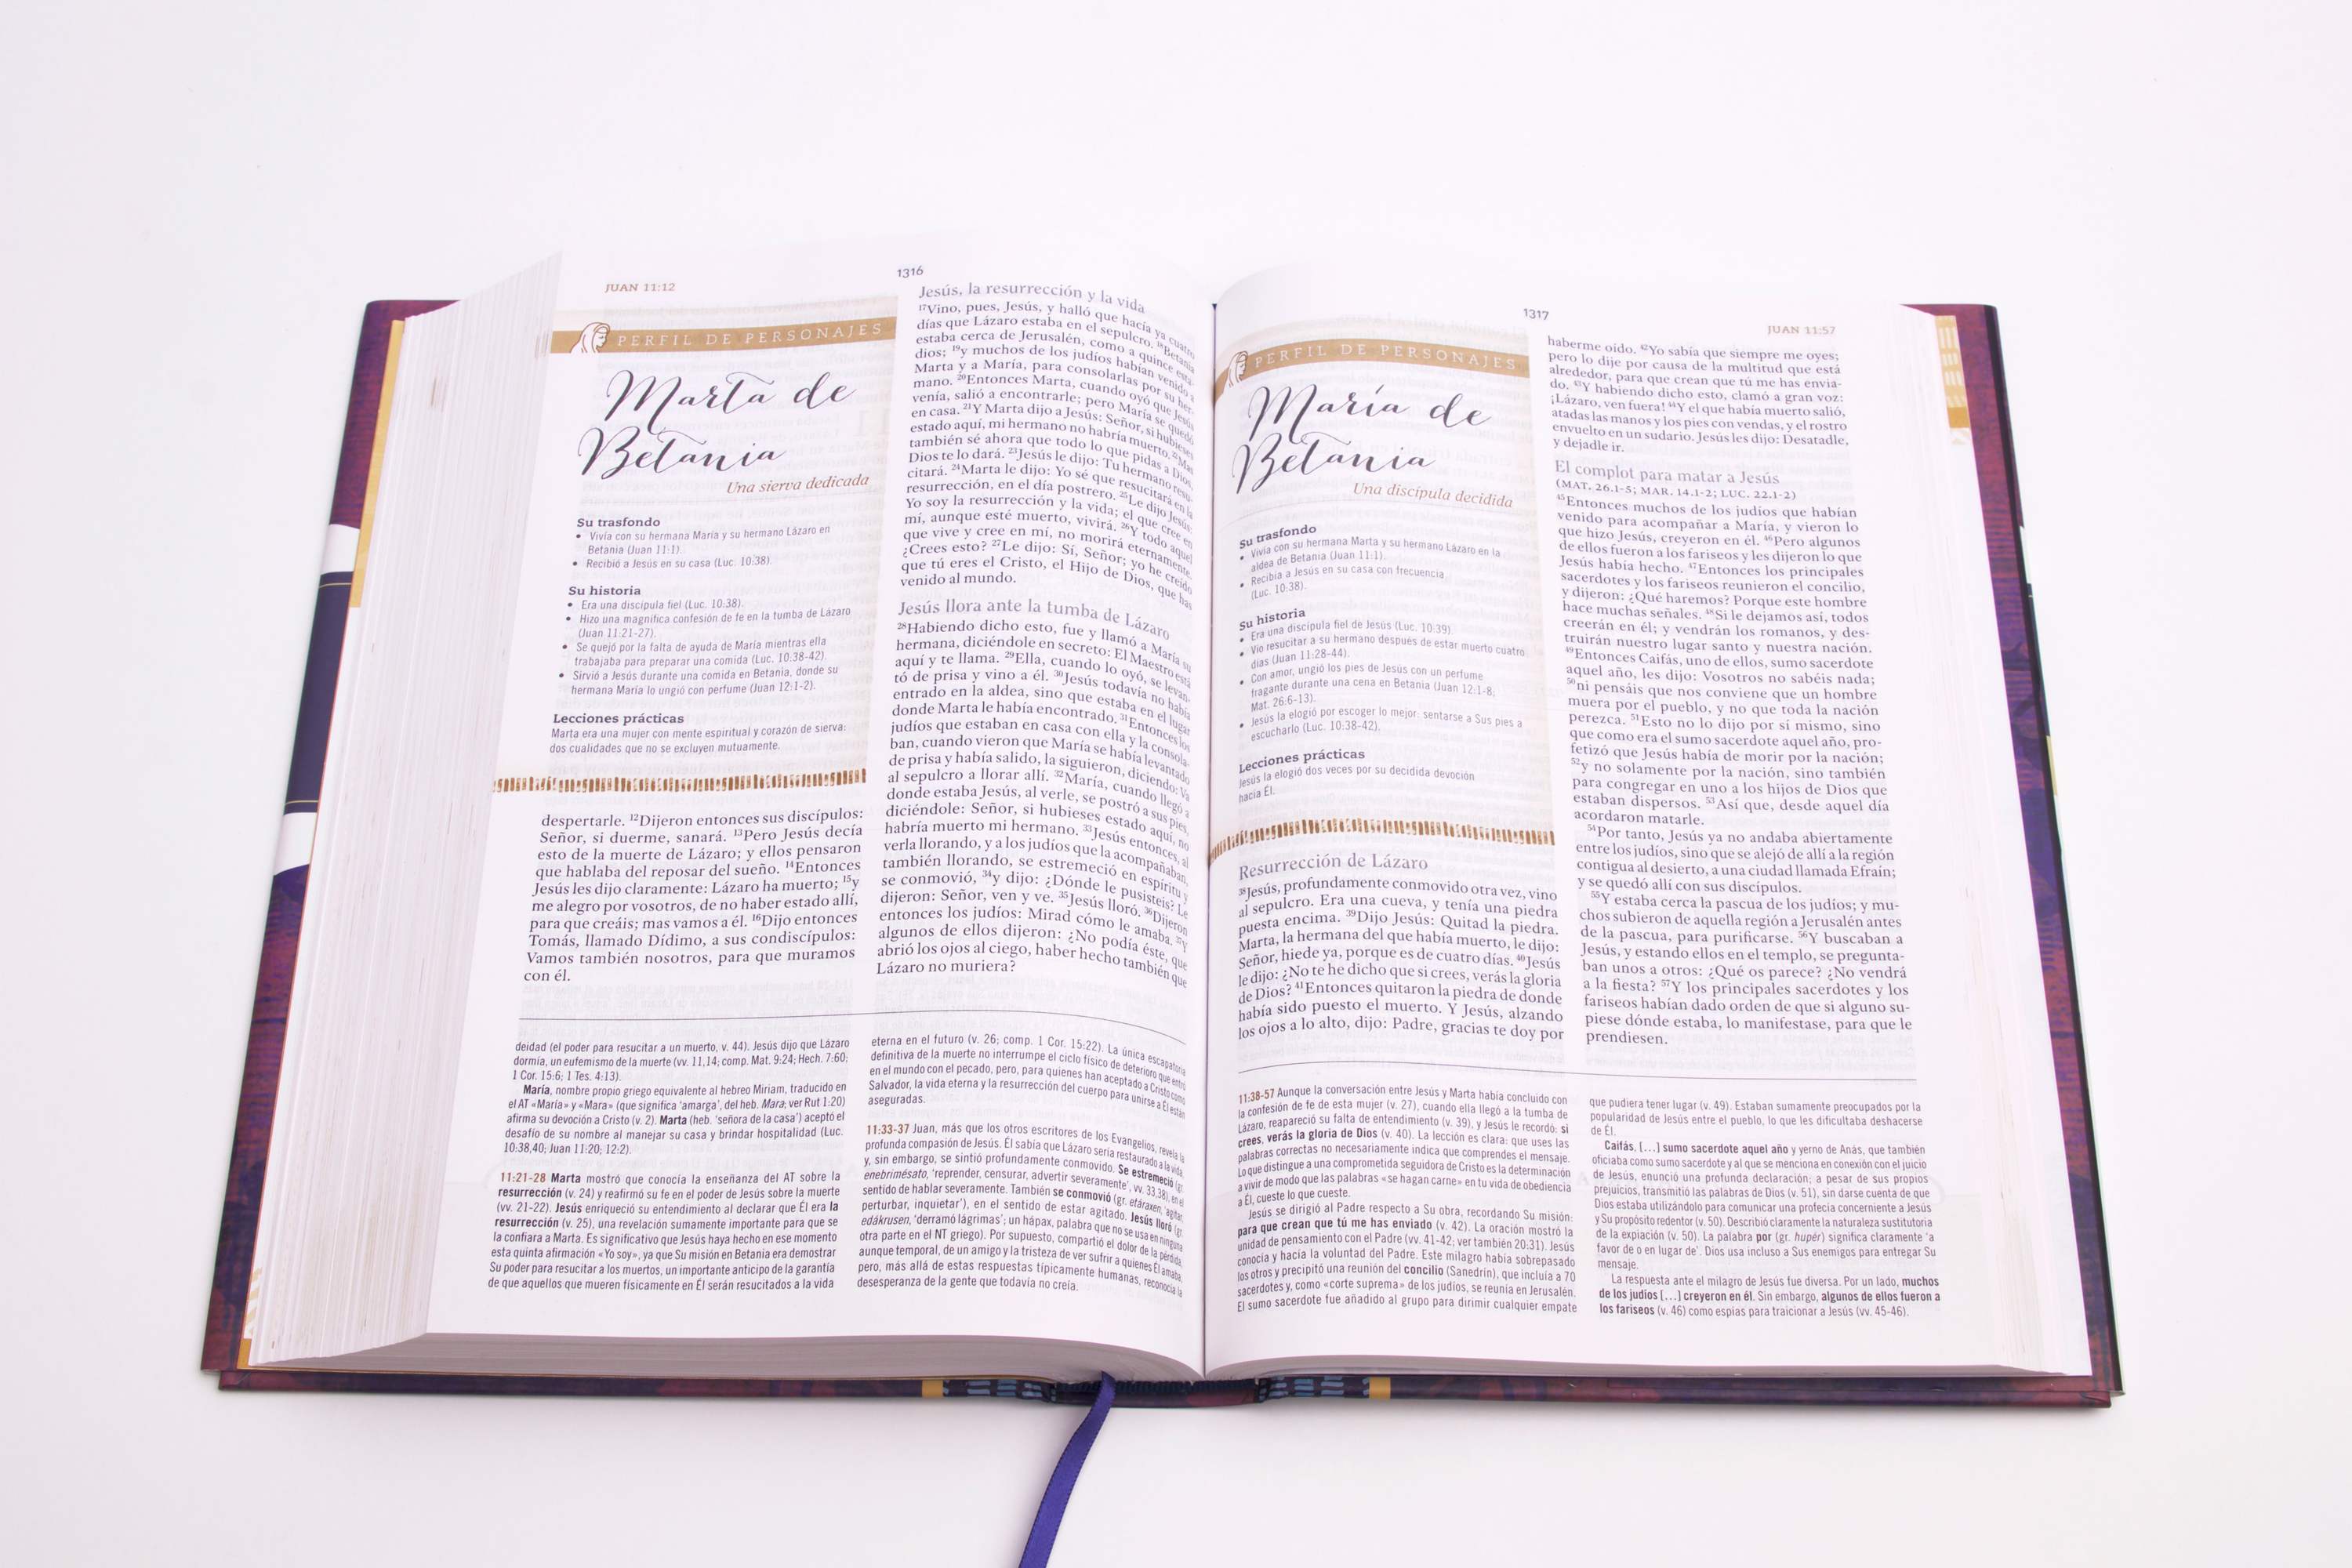 JUAN 11:12
1316
PERFIL DE PERSONAJES
Marta de
Betania
Una sierva dedicada
Su trasfondo
• Vivía con su hermana María y su hermano Lázaro en
Betania (Juan 11:1).
• Recibió a Jesús en su casa (Luc. 10:38).
Su historia
• Era una discípula fiel (Luc. 10:38).
• Hizo una magnífica confesión de fe en la tumba de Lázaro
(Juan 11:21-27).
• Se quejó por la falta de ayuda de María mientras ella
trabajaba para preparar una comida (Luc. 10:38-42).
• Sirvió a Jesús durante una comida en Betania, donde su
hermana María lo ungió con perfume (Juan 12:1-2).
Lecciones prácticas
Marta era una mujer con mente espiritual y corazón de sierva:
dos cualidades que no se excluyen mutuamente.
despertarle. 12Dijeron entonces sus discípulos:
Señor, si duerme, sanará. 13Pero Jesús decía
esto de la muerte de Lázaro; y ellos pensaron
que hablaba del reposar del sueño. 14Entonces
Jesús les dijo claramente: Lázaro ha muerto; 15y
me alegro por vosotros, de no haber estado allí,
para que creáis; mas vamos a él. 16Dijo entonces
Tomás, llamado Dídimo, a sus condiscípulos:
Vamos también nosotros, para que muramos
con él.
Jesús, la resurrección y la vida
17Vino, pues, Jesús, y halló que hacía ya cuatro
días que Lázaro estaba en el sepulcro. 18Betania
estaba cerca de Jerusalén, como a quince esta-
dios; 19y muchos de los judíos habían venido a
Marta y a María, para consolarlas por su her-
mano. 20Entonces Marta, cuando oyó que Jesús
venía, salió a encontrarle; pero María se quedó
en casa. 21Y Marta dijo a Jesús: Señor, si hubieses
estado aquí, mi hermano no habría muerto. 22Mas
también sé ahora que todo lo que pidas a Dios,
Dios te lo dará. 23Jesús le dijo: Tu hermano resu-
citará. 24Marta le dijo: Yo sé que resucitará en la
resurrección, en el día postrero. 25Le dijo Jesús:
Yo soy la resurrección y la vida; el que cree en
mí, aunque esté muerto, vivirá. 26Y todo aquel
que vive y cree en mí, no morirá eternamente.
¿Crees esto? 27Le dijo: Sí, Señor; yo he creído
que tú eres el Cristo, el Hijo de Dios, que has
venido al mundo.
Jesús llora ante la tumba de Lázaro
28Habiendo dicho esto, fue y llamó a María su
hermana, diciéndole en secreto: El Maestro está
aquí y te llama. 29Ella, cuando lo oyó, se levan-
tó de prisa y vino a él. 30Jesús todavía no había
entrado en la aldea, sino que estaba en el lugar
donde Marta le había encontrado. 31Entonces los
judíos que estaban en casa con ella y la consola-
ban, cuando vieron que María se había levantado
de prisa y había salido, la siguieron, diciendo: Va
al sepulcro a llorar allí. 32María, cuando llegó a
donde estaba Jesús, al verle, se postró a sus pies,
diciéndole: Señor, si hubieses estado aquí, no
habría muerto mi hermano. 33Jesús entonces, al
verla llorando, y a los judíos que la acompañaban,
también llorando, se estremeció en espíritu y
se conmovió, 34y dijo: ¿Dónde le pusisteis? Le
dijeron: Señor, ven y ve. 35Jesús lloró. 36Dijeron
entonces los judíos: Mirad cómo le amaba. 37Y
algunos de ellos dijeron: ¿No podía éste, que
abrió los ojos al ciego, haber hecho también que
Lázaro no muriera?
deidad (el poder para resucitar a un muerto, v. 44). Jesús dijo que Lázaro
dormía, un eufemismo de la muerte (vv. 11,14; comp. Mat. 9:24; Hech. 7:60;
1 Cor. 15:6; 1 Tes. 4:13).
María, nombre propio griego equivalente al hebreo Miriam, traducido en
el AT «María» y «Mara» (que significa 'amarga', del heb. Mara; ver Rut 1:20)
afirma su devoción a Cristo (v. 2). Marta (heb. 'señora de la casa') aceptó el
desafío de su nombre al manejar su casa y brindar hospitalidad (Luc.
10:38,40; Juan 11:20; 12:2).
11:21-28 Marta mostró que conocía la enseñanza del AT sobre la
resurrección (v. 24) y reafirmó su fe en el poder de Jesús sobre la muerte
(vv. 21-22). Jesús enriqueció su entendimiento al declarar que Él era la
resurrección (v. 25), una revelación sumamente importante para que se
la confiara a Marta. Es significativo que Jesús haya hecho en ese momento
esta quinta afirmación «Yo soy», ya que Su misión en Betania era demostrar
Su poder para resucitar a los muertos, un importante anticipo de la garantía
de que aquellos que mueren físicamente en Él serán resucitados a la vida
eterna en el futuro (v. 26; comp. 1 Cor. 15:22). La única escapatoria
definitiva de la muerte no interrumpe el ciclo físico de deterioro que entró
en el mundo con el pecado, pero, para quienes han aceptado a Cristo como
Salvador, la vida eterna y la resurrección del cuerpo para unirse a Él están
aseguradas.
11:33-37 Juan, más que los otros escritores de los Evangelios, revela la
profunda compasión de Jesús. Él sabía que Lázaro sería restaurado a la vida,
y, sin embargo, se sintió profundamente conmovido. Se estremeció (gr.
enebrimésato, 'reprender, censurar, advertir severamente', vv. 33,38), en el
sentido de hablar severamente. También se conmovió (gr. etáraxen, 'agitar,
perturbar, inquietar'), en el sentido de estar agitado. Jesús lloró (gr.
edákrusen, 'derramó lágrimas'; un hápax, palabra que no se usa en ninguna
otra parte en el NT griego). Por supuesto, compartió el dolor de la pérdida,
aunque temporal, de un amigo y la tristeza de ver sufrir a quienes Él amaba,
pero, más allá de estas respuestas típicamente humanas, reconocía la
desesperanza de la gente que todavía no creía.
1317
JUAN 11:57
PERFIL DE PERSONAJES
María de
Betania
Una discípula decidida
Su trasfondo
• Vivía con su hermana Marta y su hermano Lázaro en la
aldea de Betania (Juan 11:1).
• Recibía a Jesús en su casa con frecuencia
(Luc. 10:38).
Su historia
• Era una discípula fiel de Jesús (Luc. 10:39).
• Vio resucitar a su hermano después de estar muerto cuatro
días (Juan 11:28-44).
• Con amor, ungió los pies de Jesús con un perfume
fragante durante una cena en Betania (Juan 12:1-8;
Mat. 26:6-13).
• Jesús la elogió por escoger lo mejor: sentarse a Sus pies a
escucharlo (Luc. 10:38-42).
Lecciones prácticas
Jesús la elogió dos veces por su decidida devoción
hacia Él.
Resurrección de Lázaro
38Jesús, profundamente conmovido otra vez, vino
al sepulcro. Era una cueva, y tenía una piedra
puesta encima. 39Dijo Jesús: Quitad la piedra.
Marta, la hermana del que había muerto, le dijo:
Señor, hiede ya, porque es de cuatro días. 40Jesús
le dijo: ¿No te he dicho que si crees, verás la gloria
de Dios? 41Entonces quitaron la piedra de donde
había sido puesto el muerto. Y Jesús, alzando
los ojos a lo alto, dijo: Padre, gracias te doy por
haberme oído. 42Yo sabía que siempre me oyes;
pero lo dije por causa de la multitud que está
alrededor, para que crean que tú me has envia-
do. 43Y habiendo dicho esto, clamó a gran voz:
¡Lázaro, ven fuera! 44Y el que había muerto salió,
atadas las manos y los pies con vendas, y el rostro
envuelto en un sudario. Jesús les dijo: Desatadle,
y dejadle ir.
El complot para matar a Jesús
(MAT. 26.1-5; MAR. 14.1-2; LUC. 22.1-2)
45Entonces muchos de los judíos que habían
venido para acompañar a María, y vieron lo
que hizo Jesús, creyeron en él. 46Pero algunos
de ellos fueron a los fariseos y les dijeron lo que
Jesús había hecho. 47Entonces los principales
sacerdotes y los fariseos reunieron el concilio,
y dijeron: ¿Qué haremos? Porque este hombre
hace muchas señales. 48Si le dejamos así, todos
creerán en él; y vendrán los romanos, y des-
truirán nuestro lugar santo y nuestra nación.
49Entonces Caifás, uno de ellos, sumo sacerdote
aquel año, les dijo: Vosotros no sabéis nada;
50ni pensáis que nos conviene que un hombre
muera por el pueblo, y no que toda la nación
perezca. 51Esto no lo dijo por sí mismo, sino
que como era el sumo sacerdote aquel año, pro-
fetizó que Jesús había de morir por la nación;
52y no solamente por la nación, sino también
para congregar en uno a los hijos de Dios que
estaban dispersos. 53Así que, desde aquel día
acordaron matarle.
54Por tanto, Jesús ya no andaba abiertamente
entre los judíos, sino que se alejó de allí a la región
contigua al desierto, a una ciudad llamada Efraín;
y se quedó allí con sus discípulos.
55Y estaba cerca la pascua de los judíos; y mu-
chos subieron de aquella región a Jerusalén antes
de la pascua, para purificarse. 56Y buscaban a
Jesús, y estando ellos en el templo, se pregunta-
ban unos a otros: ¿Qué os parece? ¿No vendrá
a la fiesta? 57Y los principales sacerdotes y los
fariseos habían dado orden de que si alguno su-
piese dónde estaba, lo manifestase, para que le
prendiesen.
11:38-57 Aunque la conversación entre Jesús y Marta había concluido con
la confesión de fe de esta mujer (v. 27), cuando ella llegó a la tumba de
Lázaro, reapareció su falta de entendimiento (v. 39), y Jesús le recordó: si
crees, verás la gloria de Dios (v. 40). La lección es clara: que uses las
palabras correctas no necesariamente indica que comprendes el mensaje.
Lo que distingue a una comprometida seguidora de Cristo es la determinación
a vivir de modo que las palabras «se hagan carne» en tu vida de obediencia
a Él, cueste lo que cueste.
Jesús se dirigió al Padre respecto a Su obra, recordando Su misión:
para que crean que tú me has enviado (v. 42). La oración mostró la
unidad de pensamiento con el Padre (vv. 41-42; ver también 20:31). Jesús
conocía y hacía la voluntad del Padre. Este milagro había sobrepasado
los otros y precipitó una reunión del concilio (Sanedrín), que incluía a 70
sacerdotes y, como «corte suprema» de los judíos, se reunía en Jerusalén.
El sumo sacerdote fue añadido al grupo para dirimir cualquier empate
que pudiera tener lugar (v. 49). Estaban sumamente preocupados por la
popularidad de Jesús entre el pueblo, lo que les dificultaba deshacerse
de Él.
Caifás, [...] sumo sacerdote aquel año y yerno de Anás, que también
oficiaba como sumo sacerdote y al que se menciona en conexión con el juicio
de Jesús, enunció una profunda declaración; a pesar de sus propios
prejuicios, transmitió las palabras de Dios (v. 51), sin darse cuenta de que
Dios estaba utilizándolo para comunicar una profecía concerniente a Jesús
y Su propósito redentor (v. 50). Describió claramente la naturaleza sustitutoria
de la expiación (v. 50). La palabra por (gr. hupér) significa claramente 'a
favor de o en lugar de'. Dios usa incluso a Sus enemigos para entregar Su
mensaje.
La respuesta ante el milagro de Jesús fue diversa. Por un lado, muchos
de los judíos [...] creyeron en él. Sin embargo, algunos de ellos fueron a
los fariseos (v. 46) como espías para traicionar a Jesús (vv. 45-46).